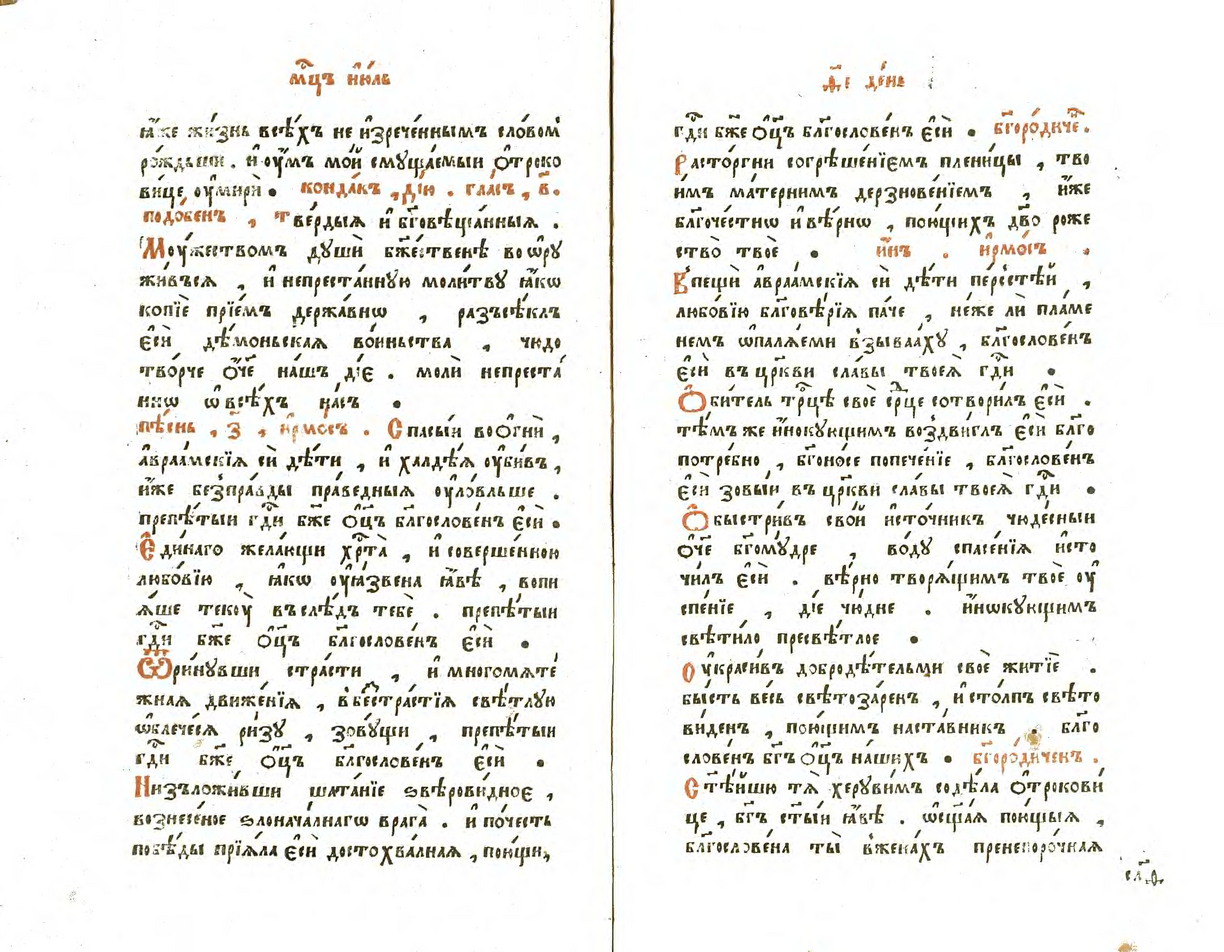 мⷭ҇цъ і҆ю́ль
ꙗ҆́же жи́знь всѣ́хъ не и҆зрече́ннымъ сло́вомъ
ро́ждьши . и҆ ᲂу҆́мъ мо́й смꙋща́емыи ѻ҆троко
ви́це ᲂу҆мирѝ . конда́къ , ді́ю . гла́съ , в҃.
подо́бенъ , тве́рдыѧ и҆ бг҃овѣща́нныѧ .
Моу́жествомъ дꙋшѝ бж҃е́ственѣ во ѡ҆рꙋ
жи́всѧ , и҆ непреста́ннꙋю моли́твꙋ ꙗ҆́кѡ
копїѐ прїе́мъ держа́внѡ , разъсѣ́клъ
є҆сѝ де́моньскаѧ во́иньства , чю́до
тво́рче ѻ҆́ч҃е на́шъ ді́е . молѝ непреста́
ннѡ ѡ҆ всѣ́хъ на́съ .
пѣ́снь , з҃ , і҆рмо́съ . Спасы́и во ѻ҆гнѝ ,
а҆враа́мскїѧ сѝ дѣ́ти , и҆ халдѣ́ѧ ᲂу҆би́въ ,
и҆́же безпра́вды пра́ведныѧ ᲂу҆ловльше .
препѣ́тыи гдⷭ҇и бж҃е ѻ҆ц҃ъ благослове́нъ є҆сѝ .
Є҆ди́наго жела́ющи хрⷭ҇та̀ , и҆ соверше́нною
любо́вїю , ꙗ҆́кѡ ᲂу҆ѧ́звена ꙗ҆́вѣ , вопи
ѧ́ше текоу̀ въслѣ́дъ тебѐ . препѣ́тыи
гдⷭ҇и бж҃е ѻ҆ц҃ъ бл҃гослове́нъ є҆сѝ .
Ѿри́нꙋвши стра́сти , и҆ многомѧте́
жнаѧ движе́нїѧ , в безстра́стїѧ свѣ́тлꙋю
ѡ҆блече́сѧ ри́зꙋ , зовꙋ́щи , препѣ́тыи
гдⷭ҇и бж҃е ѻ҆ц҃ъ бл҃гослове́нъ є҆сѝ .
Низъложи́вши шата́нїе ѕвѣрови́дное ,
вознесе́ное ѕлонача́лнагѡ врага̀ . и҆ по́честь
побѣ́ды прїѧ́ла є҆сѝ достохва́лнаѧ , пою́щи,
д҃е де́нь
гдⷭ҇и бж҃е ѻ҆ц҃ъ бл҃гослове́нъ є҆сѝ . бг҃оро́диче .
Расто́ргни согрѣше́нїемъ плени́цы , тво
и́мъ ма́тернимъ дерзнове́нїемъ , и҆́же
благоче́стнѡ и҆ вѣ́рнѡ , пою́щихъ дв҃о роже
ство̀ твоѐ . и҆́нъ . і҆рмо́съ .
В пещѝ а҆враа́мскїѧ сѝ дѣ́ти пе́рсстѣй ,
любо́вїю бл҃говѣ́рїѧ па́че , не́же ли пла́ме
немъ ѡ҆палѧ́еми взыва́ахꙋ , бл҃гослове́нъ
є҆сѝ въ цр҃кви сла́вы твоеѧ̀ гдⷭ҇и .
Ѻ҆би́тель трⷪ҇цѣ своѐ се́рⷣце сотвори́лъ є҆сѝ .
тѣ́мъ же и҆нокꙋ́ющимъ воздви́глъ є҆сѝ бл҃го
потре́бно , бг҃оно́се попече́нїе , бл҃гослове́нъ
є҆сѝ зовы́и въ цр҃кви сла́вы твоеѧ̀ гдⷭ҇и .
Ѻ҆быстри́въ сво́й и҆сто́чникъ чюде́сныи
ѻ҆́ч҃е бг҃омꙋ́дре , во́дꙋ спасе́нїѧ и҆сто
чи́лъ є҆сѝ . вѣ́рно творѧ́щимъ твоѐ ᲂу҆
спе́нїе , ді́е чю́дне . и҆́нѡкꙋющимъ
свѣти́ло пресвѣ́тлое .
Оу҆краси́въ добродѣ́тельми своѐ житїѐ .
бы́сть ве́сь свѣтоза́ренъ , и҆ сто́лпъ свѣто
ви́денъ , пою́щимъ наста́вникъ . бл҃го
слове́нъ бг҃ъ ѻ҆ц҃ъ на́шихъ . бг҃оро́диченъ .
Стѣ́йшю тѧ̀ херꙋви́мъ содѣ́ла ѻ҆трокови́
це , бг҃ъ ст҃ы́и ꙗ҆́вѣ . ѡ҆сщ҃а́ѧ пою́щыѧ ,
бл҃гослове́на ты̀ в жена́хъ пренепоро́чнаѧ
сл҃.ѳ.